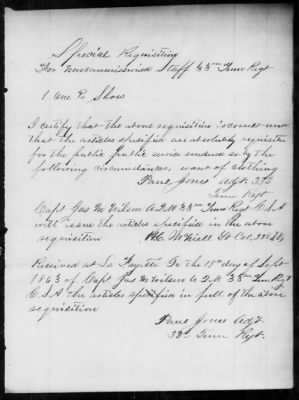 Special Requisition
For Noncommissioned Staff 33rd Tenn Regt
1 One Pr Shoes
I certify that the above requisition is correct and
that the articles specified are absolutely requisite
for the public service rendered so by the
following circumstances, want of clothing
Paul Jones Adjt 33d
Tenn Regt
Capt Jas M Wilson A.Q.M 33rd Tenn Regt C.S.A
will issue the articles specified in the above
requisition H.C. McNeill Lt Col.
Received at La Fayette Ga the 18th day of Sept
1863 of Capt Jas M Wilson A Q M 33rd Tenn Regt
C.S.A the articles specified in full of the above
requisition
Paul Jones Adjt
33d Tenn Regt.